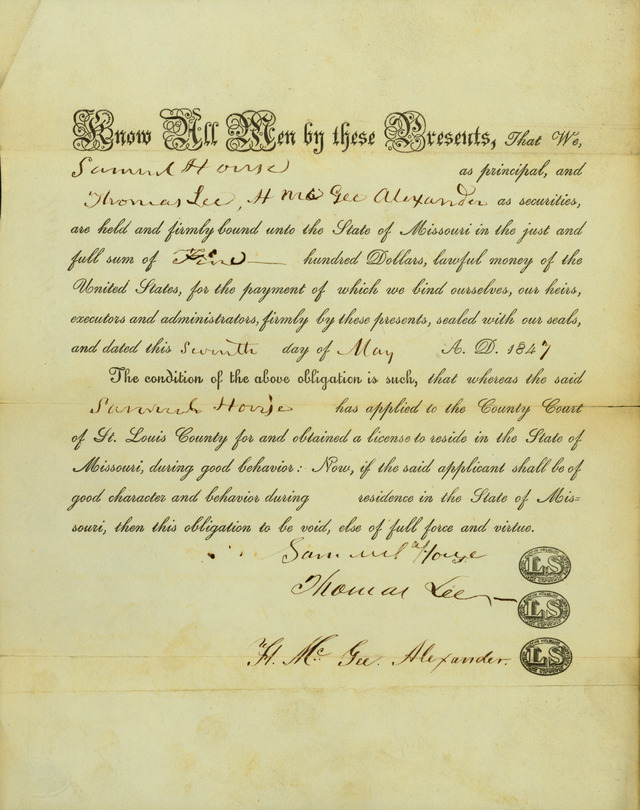 Know All Men by these Presents, That We,
Samuel House as principal, and
Thomas Lee, H Mc Gee Alexander as securities,
are held and firmly bound unto the State of Missouri in the just and
full sum of Five hundred Dollars, lawful money of the
United States, for the payment of which we bind ourselves, our heirs,
executors and administrators, firmly by these presents, sealed with our seals,
and dated this Seventh day of May A. D. 1847
The condition of the above obligation is such, that whereas the said
Samuel House has applied to the County Court
of St. Louis County for and obtained a license to reside in the State of
Missouri, during good behavior: Now, if the said applicant shall be of
good character and behavior during residence in the State of Mis=
souri, then this obligation to be void, else of full force and virtue.
Samuel House
LS
Thomas Lee
LS
H. Mc Gee. Alexander.
LS